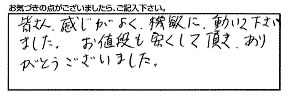 お気づきの点がございましたら、ご記入下さい。
皆さん、感じがよく、機敏に、動いて下さい
ました。 お値段も安くして頂き、あり
がとうございました。